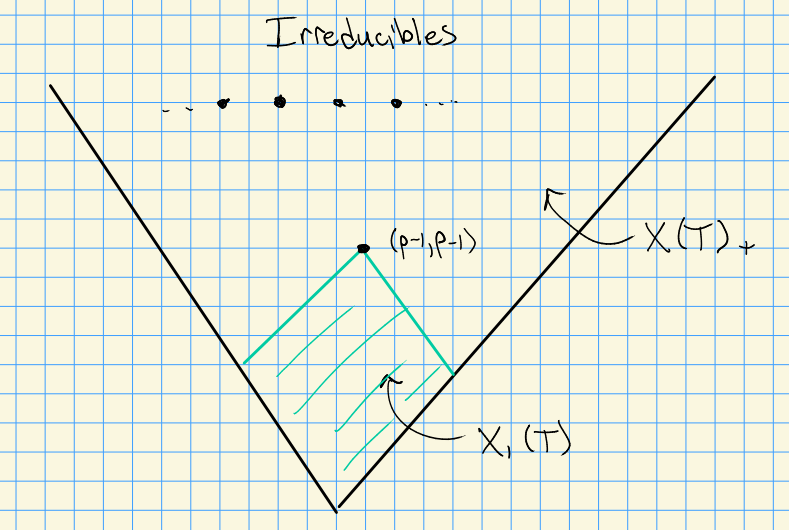 Irreducibles
(p-1,p-1)
X(T)₊
X₁(T)